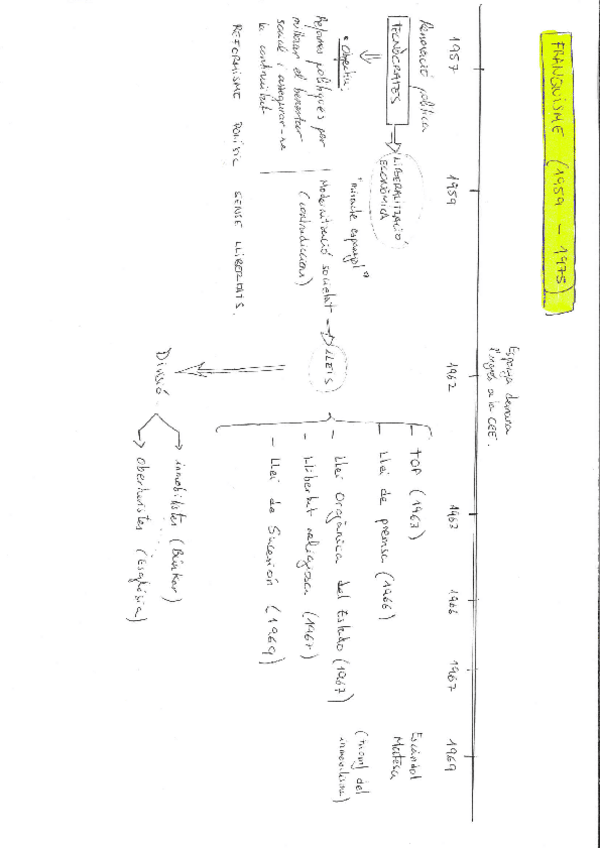 FRANQUISME (1959 - 1975)
Espanya demana
l'ingrés a la CEE.
1957
1959
1962
1963
1966
1967
1969
Renovació política
TECNÒCRATES
LIBERALITZACIÓ
ECONÒMICA
• Objectiu:
Reformes polítiques per
millorar el benestar
social i assegurar-ne
la continuïtat
"miracle espanyol"
Modernització societat
(contradiccions)
LLEIS
- TOP (1963)
- Llei de premsa (1966)
- Llei Orgànica del Estado (1967)
- Llibertat religiosa (1967)
- Llei de Sucesión (1969)
Escàndol
Matesa
(triomf del
inmovilisme)
REFORMISME POLÍTIC SENSE LLIBERTATS.
Divisió
inmobilistes (Búnker)
oberturistes (Església)